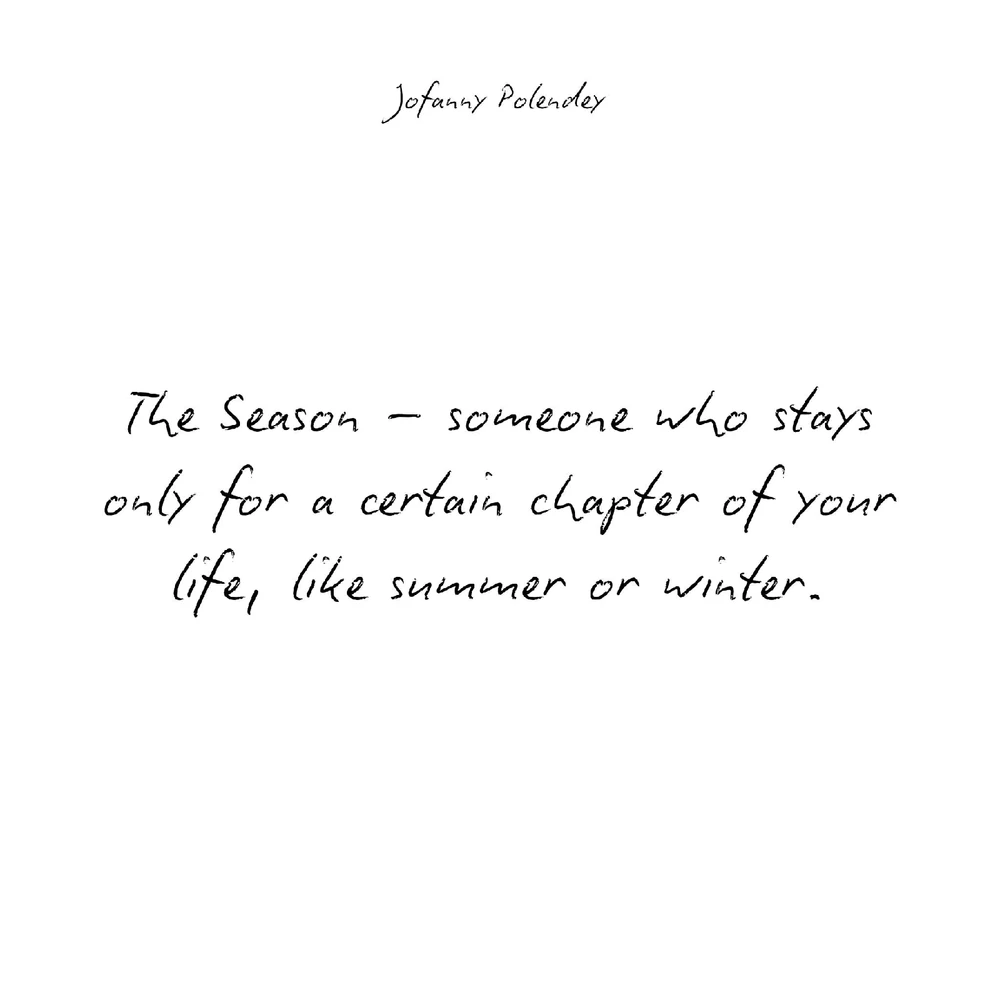 Jofanny Polendey
The Season – someone who stays
only for a certain chapter of your
life, like summer or winter.